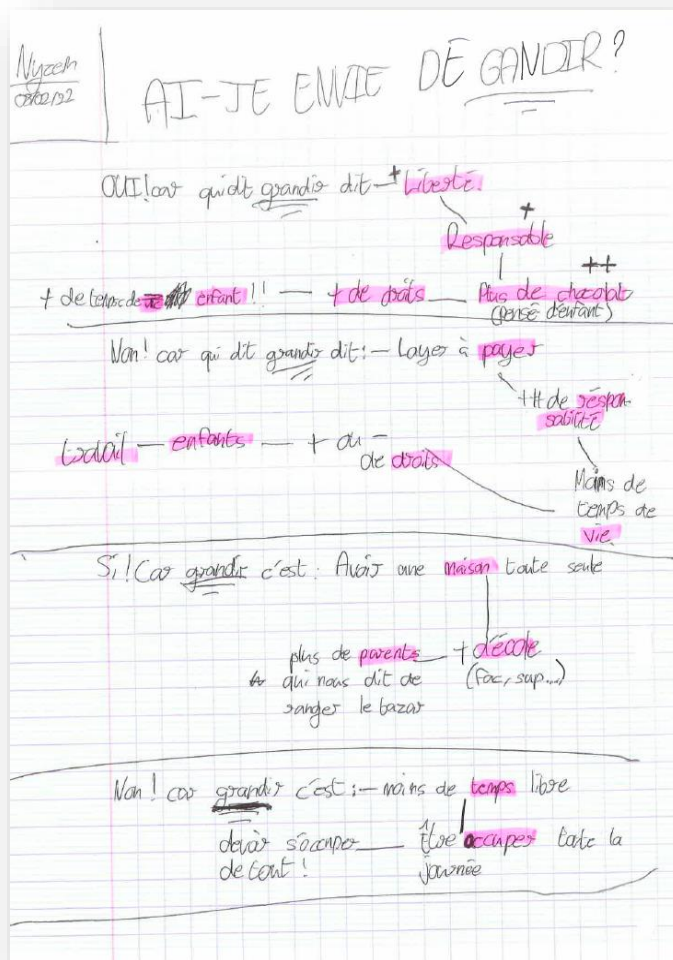 Nyzem
AI-JE ENVIE DE GANDIR?
OUI! car qui dit grandir dit - + Liberté!
+
Responsable
++
+ de temps de enfant!! — + de droits — Plus de chocolat
(pensé d'enfant)
Non! car qui dit grandir dit: - Loyer à payer
++ de respon-
sabilité
travail — enfants — + ou -
de droits
Moins de
temps de
vie.
Si! Car grandir c'est: Avoir une maison toute seule
plus de parents — + d'école
qui nous dit de (fac, sup...)
ranger le bazar
Non! car grandir c'est: - moins de temps libre
devoir s'occuper — Être occuper toute la
de tout! journée